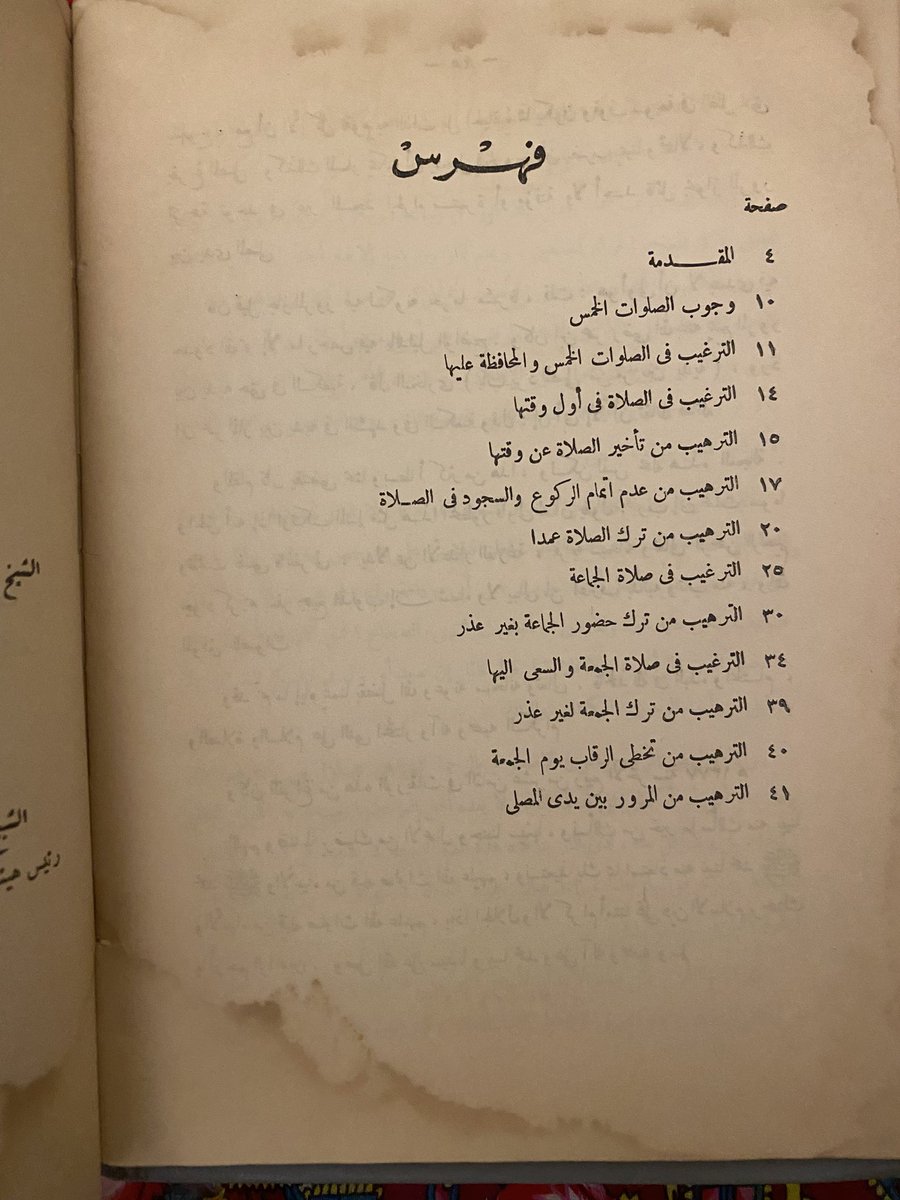 فهرس
صفحة
٤ المقـــدمة
١٠ وجوب الصلوات الخمس
١١ الترغيب فى الصلوات الخمس والمحافظة عليها
١٤ الترغيب فى الصلاة فى أول وقتها
١٥ الترهيب من تأخير الصلاة عن وقتها
١٧ الترهيب من عدم اتمام الركوع والسجود فى الصـلاة
٢٠ الترهيب من ترك الصلاة عمدا
٢٥ الترغيب فى صلاة الجماعة
٣٠ الترهيب من ترك حضور الجماعة بغير عذر
٣٤ الترغيب فى صلاة الجمعة والسعى اليها
٣٩ الترهيب من ترك الجمعة لغير عذر
٤٠ الترهيب من تخطى الرقاب يوم الجمعة
٤١ الترهيب من المرور بين يدى المصلى
الشيخ
رئيس